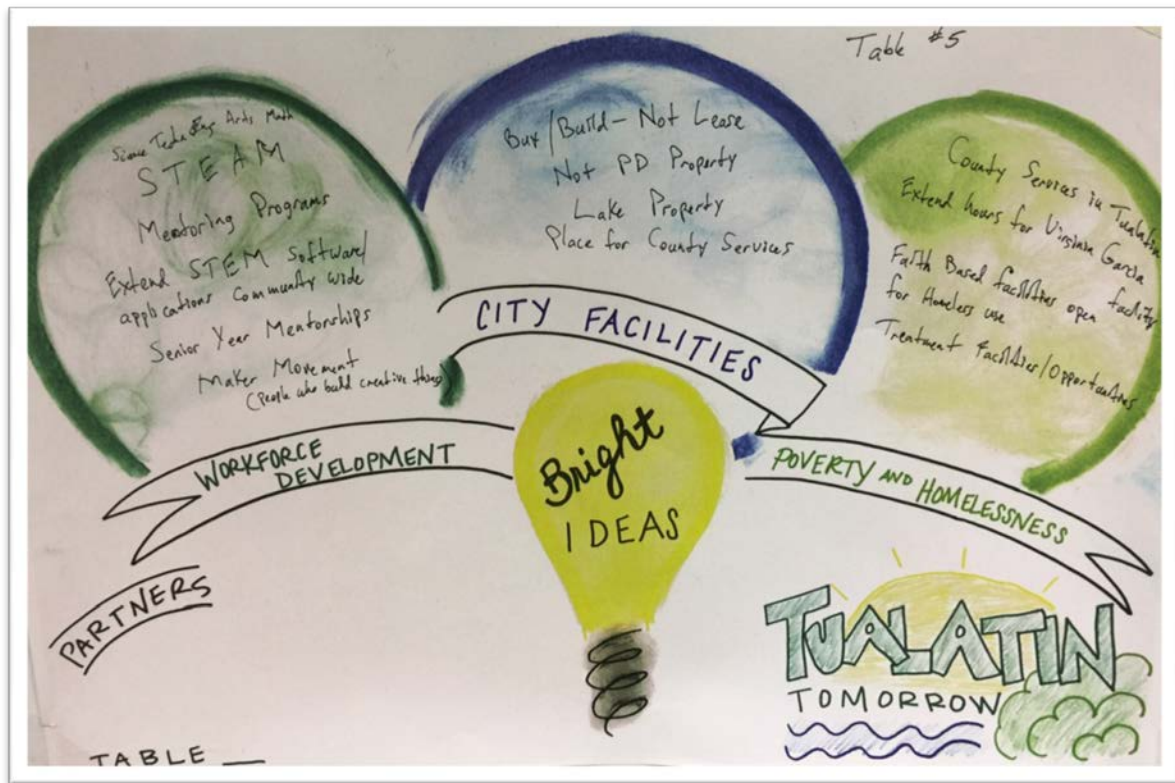 Table #5
Science Tech Eng Arts Math
STEAM
Mentoring Programs
Extend STEM Software/
applications Community wide
Senior Year Mentorships
Maker Movement
(people who build creative things)
Buy/Build - Not Lease
Not PD Property
Lake Property
Place for County Services
County Services in Tualatin
Extend hours for Virginia Garcia
facility
Faith Based facilities open
for Homeless use
Treatment Facilities/Opportunities
WORKFORCE
DEVELOPMENT
CITY FACILITIES
POVERTY AND HOMELESSNESS
Bright
IDEAS
PARTNERS
TUALATIN
TOMORROW
TABLE __